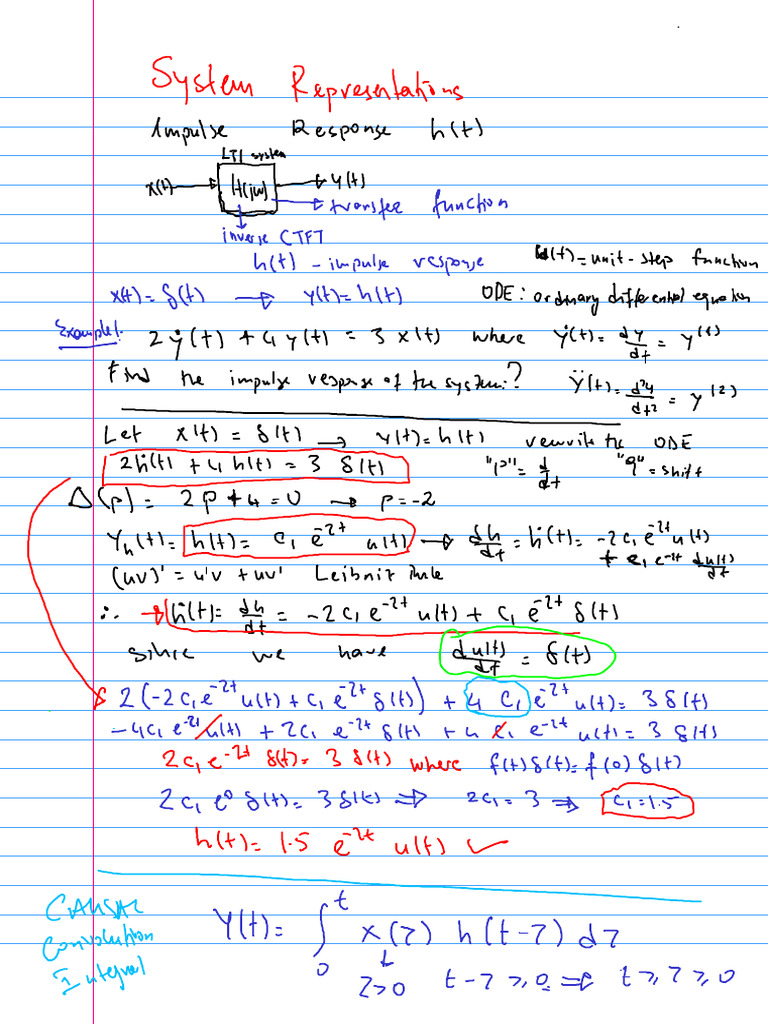 System Representations
Impulse Response h(t)
LTI system
x(t) → H(jω) → y(t)
→ transfer function
inverse CTFT
h(t) - impulse response
u(t) = unit-step function
x(t) = δ(t) → y(t) = h(t)
ODE: ordinary differential equation
Example 1: 2ẏ(t) + 4y(t) = 3x(t) where ẏ(t) = dy/dt = y^(1)
Find the impulse response of the system? ÿ(t) = d²y/dt² = y^(2)
Let x(t) = δ(t) → y(t) = h(t) rewrite the ODE
2ḣ(t) + 4h(t) = 3 δ(t) "p" = d/dt "q" = shift
Δ(p) = 2p + 4 = 0 → p = -2
Y_h(t) = h(t) = c₁ e^-2t u(t) → dh/dt = ḣ(t) = -2c₁ e^-2t u(t) + c₁ e^-2t du(t)/dt
(uv)' = u'v + uv' Leibnit rule
∴ → ḣ(t) = dh/dt = -2c₁ e^-2t u(t) + c₁ e^-2t δ(t)
since we have du(t)/dt = δ(t)
2(-2c₁e^-2t u(t) + c₁e^-2t δ(t)) + 4 c₁ e^-2t u(t) = 3δ(t)
-4c₁ e^-2t u(t) + 2c₁ e^-2t δ(t) + 4 c₁ e^-2t u(t) = 3 δ(t)
2c₁ e^-2t δ(t) = 3 δ(t) where f(t)δ(t) = f(0) δ(t)
2c₁ e⁰ δ(t) = 3δ(t) ⇒ 2c₁ = 3 ⇒ c₁ = 1.5
h(t) = 1.5 e^-2t u(t) ✓
CAUSAL
Convolution
Integral
y(t) = ∫₀^t x(τ) h(t-τ) dτ
τ>0 t-τ ≥ 0 ⇒ t ≥ τ ≥ 0